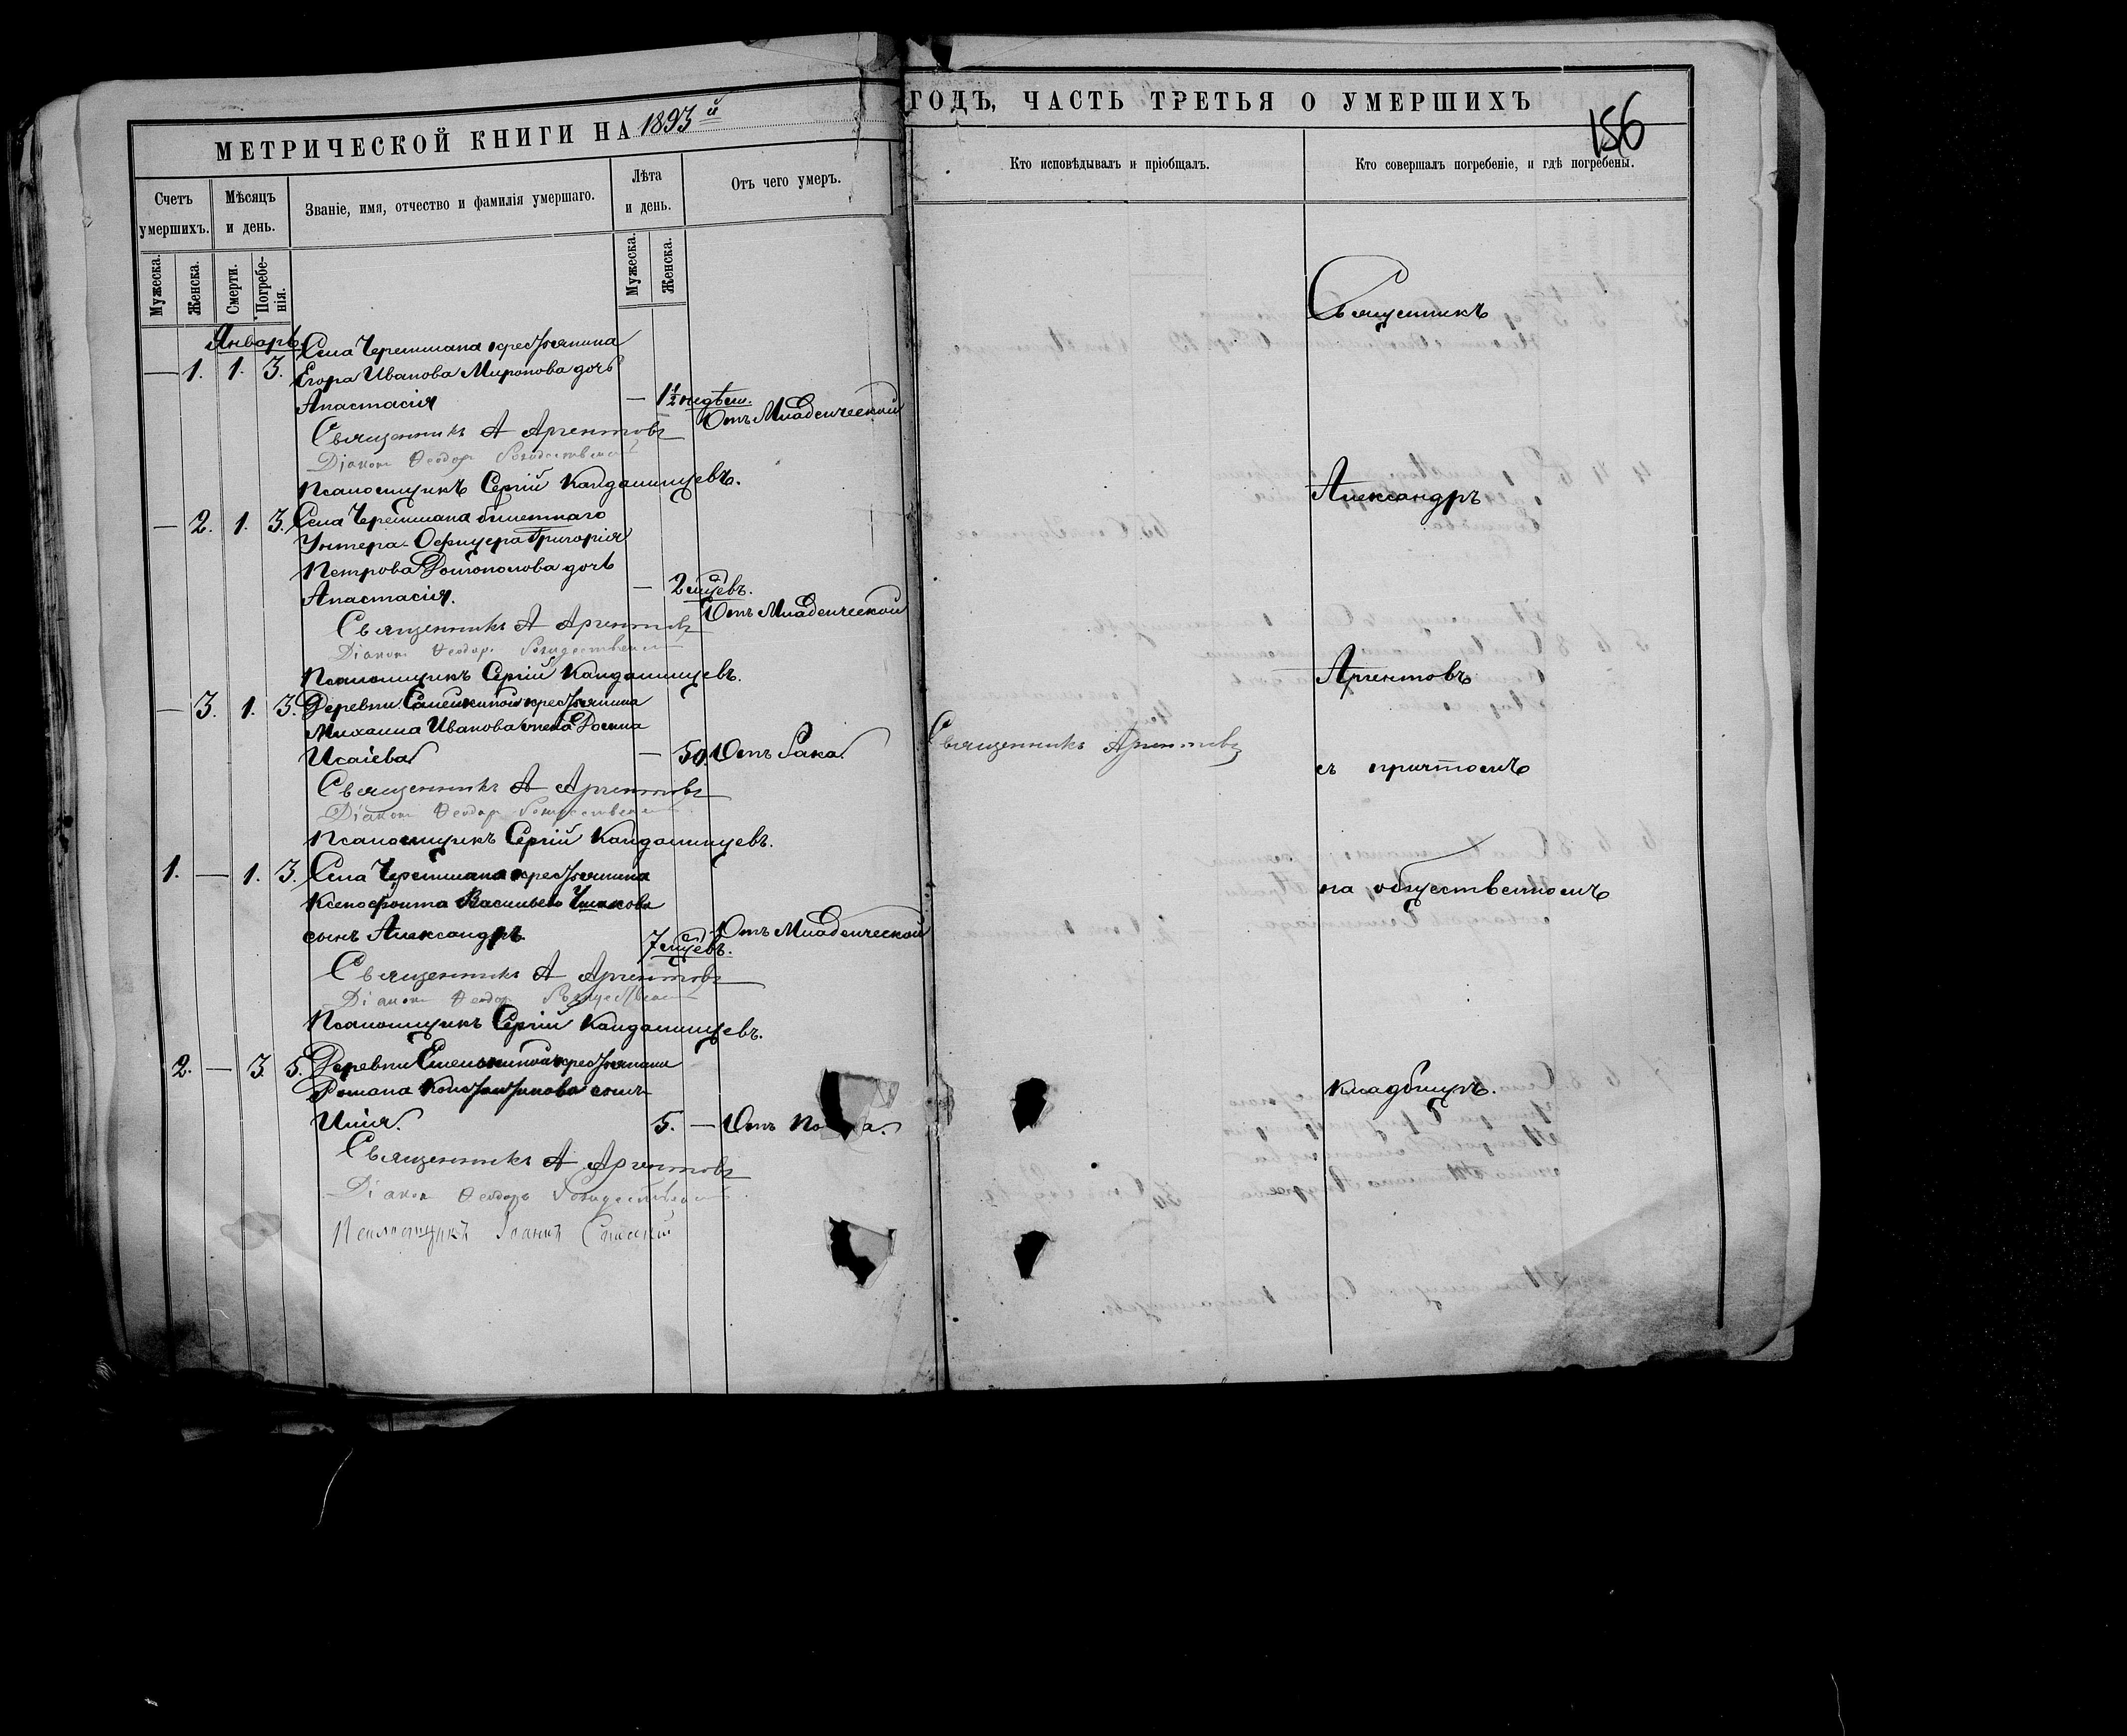 МЕТРИЧЕСКОЙ КНИГИ НА 1893й
ГОДЪ, ЧАСТЬ ТРЕТЬЯ О УМЕРШИХЪ
156
Счетъ умершихъ.
Мѣсяцъ и день.
Званіе, имя, отчество и фамилія умершаго.
Лѣта и день.
Отъ чего умеръ.
Кто исповѣдывалъ и пріобщалъ.
Кто совершалъ погребеніе, и гдѣ погребены.
Мужеска.
Женска.
Смерти.
Погребенія.
Мужеска.
Женска.
Январь.
Села Черемшана крестьянина
— 1. 1. 3. Егора Иванова Миронова дочь
Анастасія — 1½ недѣли. Отъ Младенческой
Священникъ А Аргентовъ
Діаконъ Ѳеодоръ Рождественскій
Псаломщикъ Сергій Кандалинцевъ.
— 2. 1. 3. Села Черемшана билетнаго
Унтера-Офицера Григорія
Петрова дочь
Анастасія. — 2 мцевъ. Отъ Младенческой
Священникъ А Аргентовъ
Діаконъ Ѳеодоръ Рождественскій
Псаломщикъ Сергій Кандалинцевъ.
— 3. 1. 3. Деревни крестьянина
Михаила Иванова жена Домна
Исаіева — 50. Отъ Рака.
Священникъ Аргентовъ
Священникъ А Аргентовъ
Діаконъ Ѳеодоръ Рождественскій
Псаломщикъ Сергій Кандалинцевъ.
1. — 1. 3. Села Черемшана крестьянина
Ксенофонта Васильева
сынъ Александръ. 7 мцевъ. Отъ Младенческой
Священникъ А Аргентовъ
Діаконъ Ѳеодоръ Рождественскій
Псаломщикъ Сергій Кандалинцевъ.
2. — 3. 5. Деревни Емелькиной крестьянина
Романа Константинова сынъ
Илія. 5. — Отъ
Священникъ А Аргентовъ
Діаконъ Ѳеодоръ Рождественскій
Псаломщикъ Іоаннъ Спасскій
Священникъ
Александръ
Аргентовъ
съ причтомъ
на общественномъ
кладбищѣ.